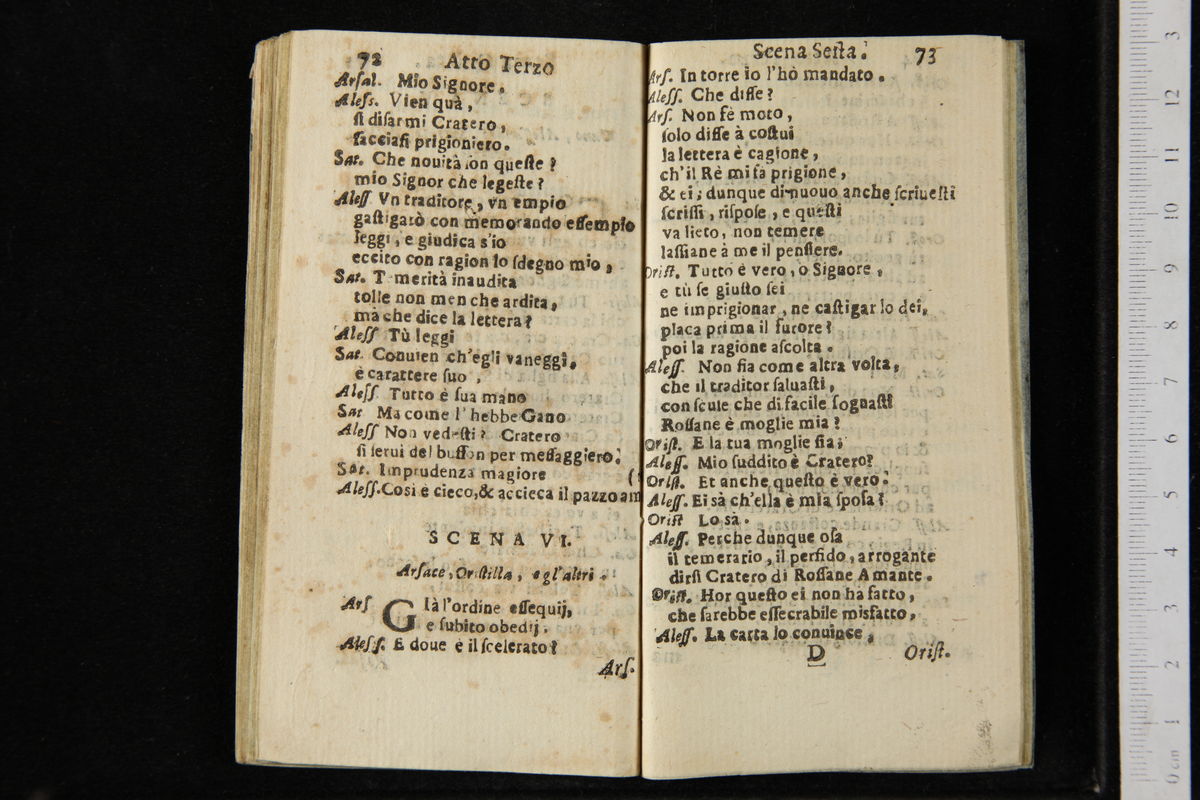 72 Atto Terzo
Arſal. Mio Signore.
Aleſs. Vien quà,
ſi diſarmi Cratero,
facciaſi prigioniero.
Sat. Che nouità ſon queſte?
mio Signor che legeſte?
Aleſſ Vn traditore, vn empio
gaſtigatò con memorando eſſempio
leggi, e giudica s'io
eccito con ragion lo ſdegno mio,
Sat. T merità inaudita
tolle non men che ardita,
mà che dice la lettera?
Aleſſ Tù leggi
Sat. Conuien ch'egli vaneggi,
è carattere ſuo,
Aleſſ. Tutto è ſua mano
Sat Ma come l'hebbe Gano
Aleſſ Non vedeſti? Cratero
ſi ſerui del buffon per meſſaggiero.
Sat. Imprudenza magiore (:
Aleſſ. Cosi è cieco, & accieca il pazzo am
SCENA VI.
Arſace, Oriſtilla, e gl'altri.
Arſ Già l'ordine eſſequij,
e ſubito obedij.
Aleſſ. E doue è il ſcelerato?
Arſ.
Scena Seſta. 73
Arſ. In torre io l'hò mandato.
Aleſſ. Che diſſe?
Arſ. Non fè moto,
ſolo diſſe à coſtui
la lettera è cagione,
ch'il Rè mi fà prigione,
& ei; dunque di nuouo anche ſcriueſti
ſcriſſi, riſpoſe, e queſti
va lieto, non temere
laſſiane à me il penſiere.
Oriſt. Tutto è vero, o Signore,
e tù ſe giuſto ſei
ne imprigionar, ne caſtigar lo dei,
placa prima il furore?
poi la ragione aſcolta.
Aleſſ. Non ſia come altra volta,
che il traditor ſaluaſti,
con ſcuſe che di facile ſognaſti
Roſſane è moglie mia?
Oriſt. E la tua moglie ſia;
Aleſſ. Mio ſuddito è Cratero?
Oriſt. Et anche queſto è vero.
Aleſſ. Ei sà ch'ella è mia ſpoſa?
Oriſt Lo sà.
Aleſſ. Perche dunque oſa
il temerario, il perfido, arrogante
dirſi Cratero di Roſſane Amante.
Oriſt. Hor queſto ei non ha fatto,
che ſarebbe eſſecrabile misfatto,
Aleſſ. La carta lo conuince,
D Oriſt.